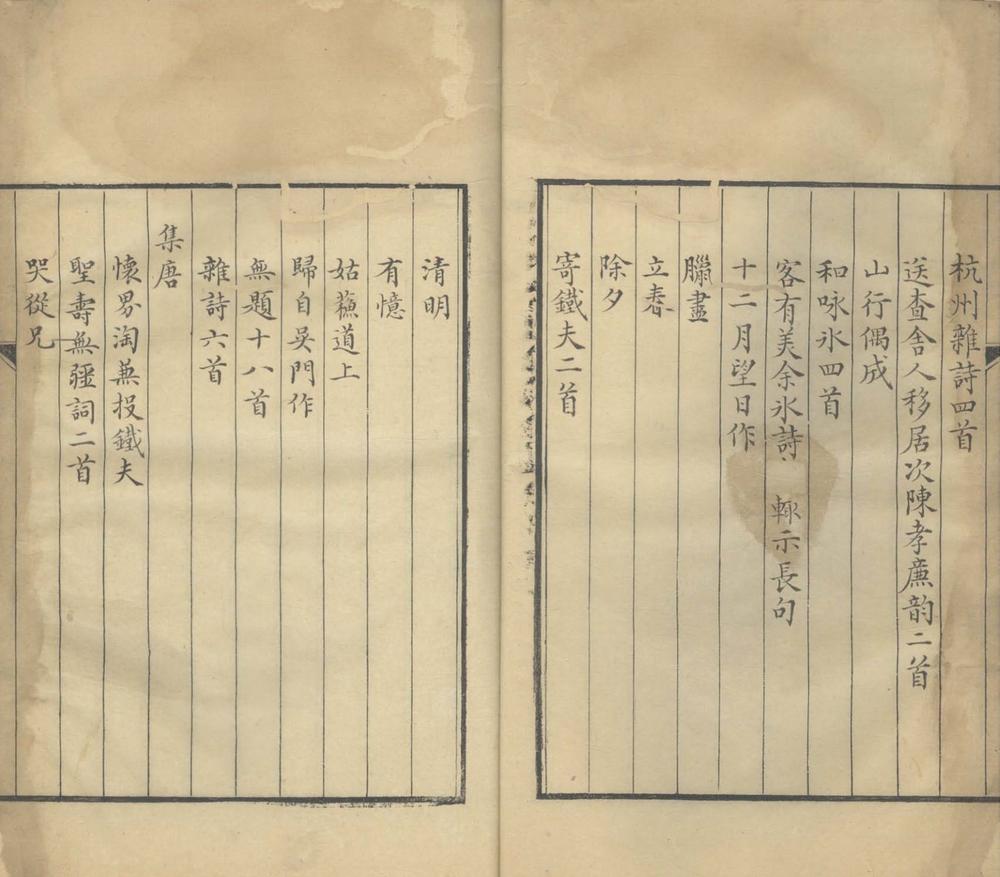 杭州雜詩四首
送查舍人移居次陳孝廉韵二首
山行偶成
和咏氷四首
客有美余氷詩 輙示長句
十二月望日作
臘盡
立春
除夕
寄鐵夫二首
清明
有憶
姑蘓道上
歸自吳門作
無題十八首
雜詩六首
集唐
懷昜淘兼投鐵夫
聖壽無疆詞二首
哭從兄